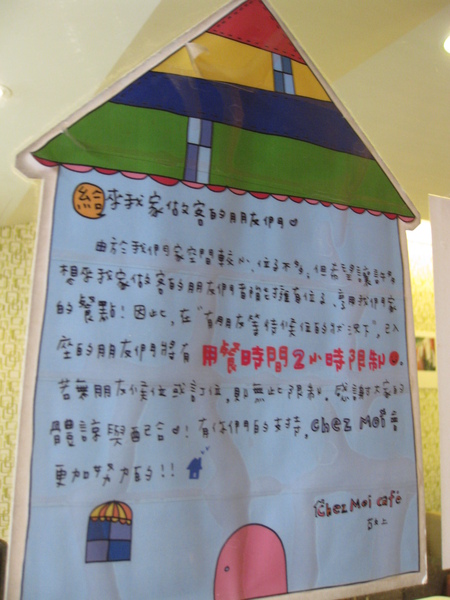 給來我家做客的朋友們♡
由於我們家空間較小、位子不多,但希望讓許多
想來我家做客的朋友們都能擁有位子、享用我們家
的餐點!因此,在"有朋友等待候位的狀況下",已入
座的朋友們將有用餐時間2小時限制.
若無朋友候位或訂位,則無此限制.感謝大家的
體諒與配合!有你們的支持,chez Moi會
更加努力的!!
Chez Moi café
敬上